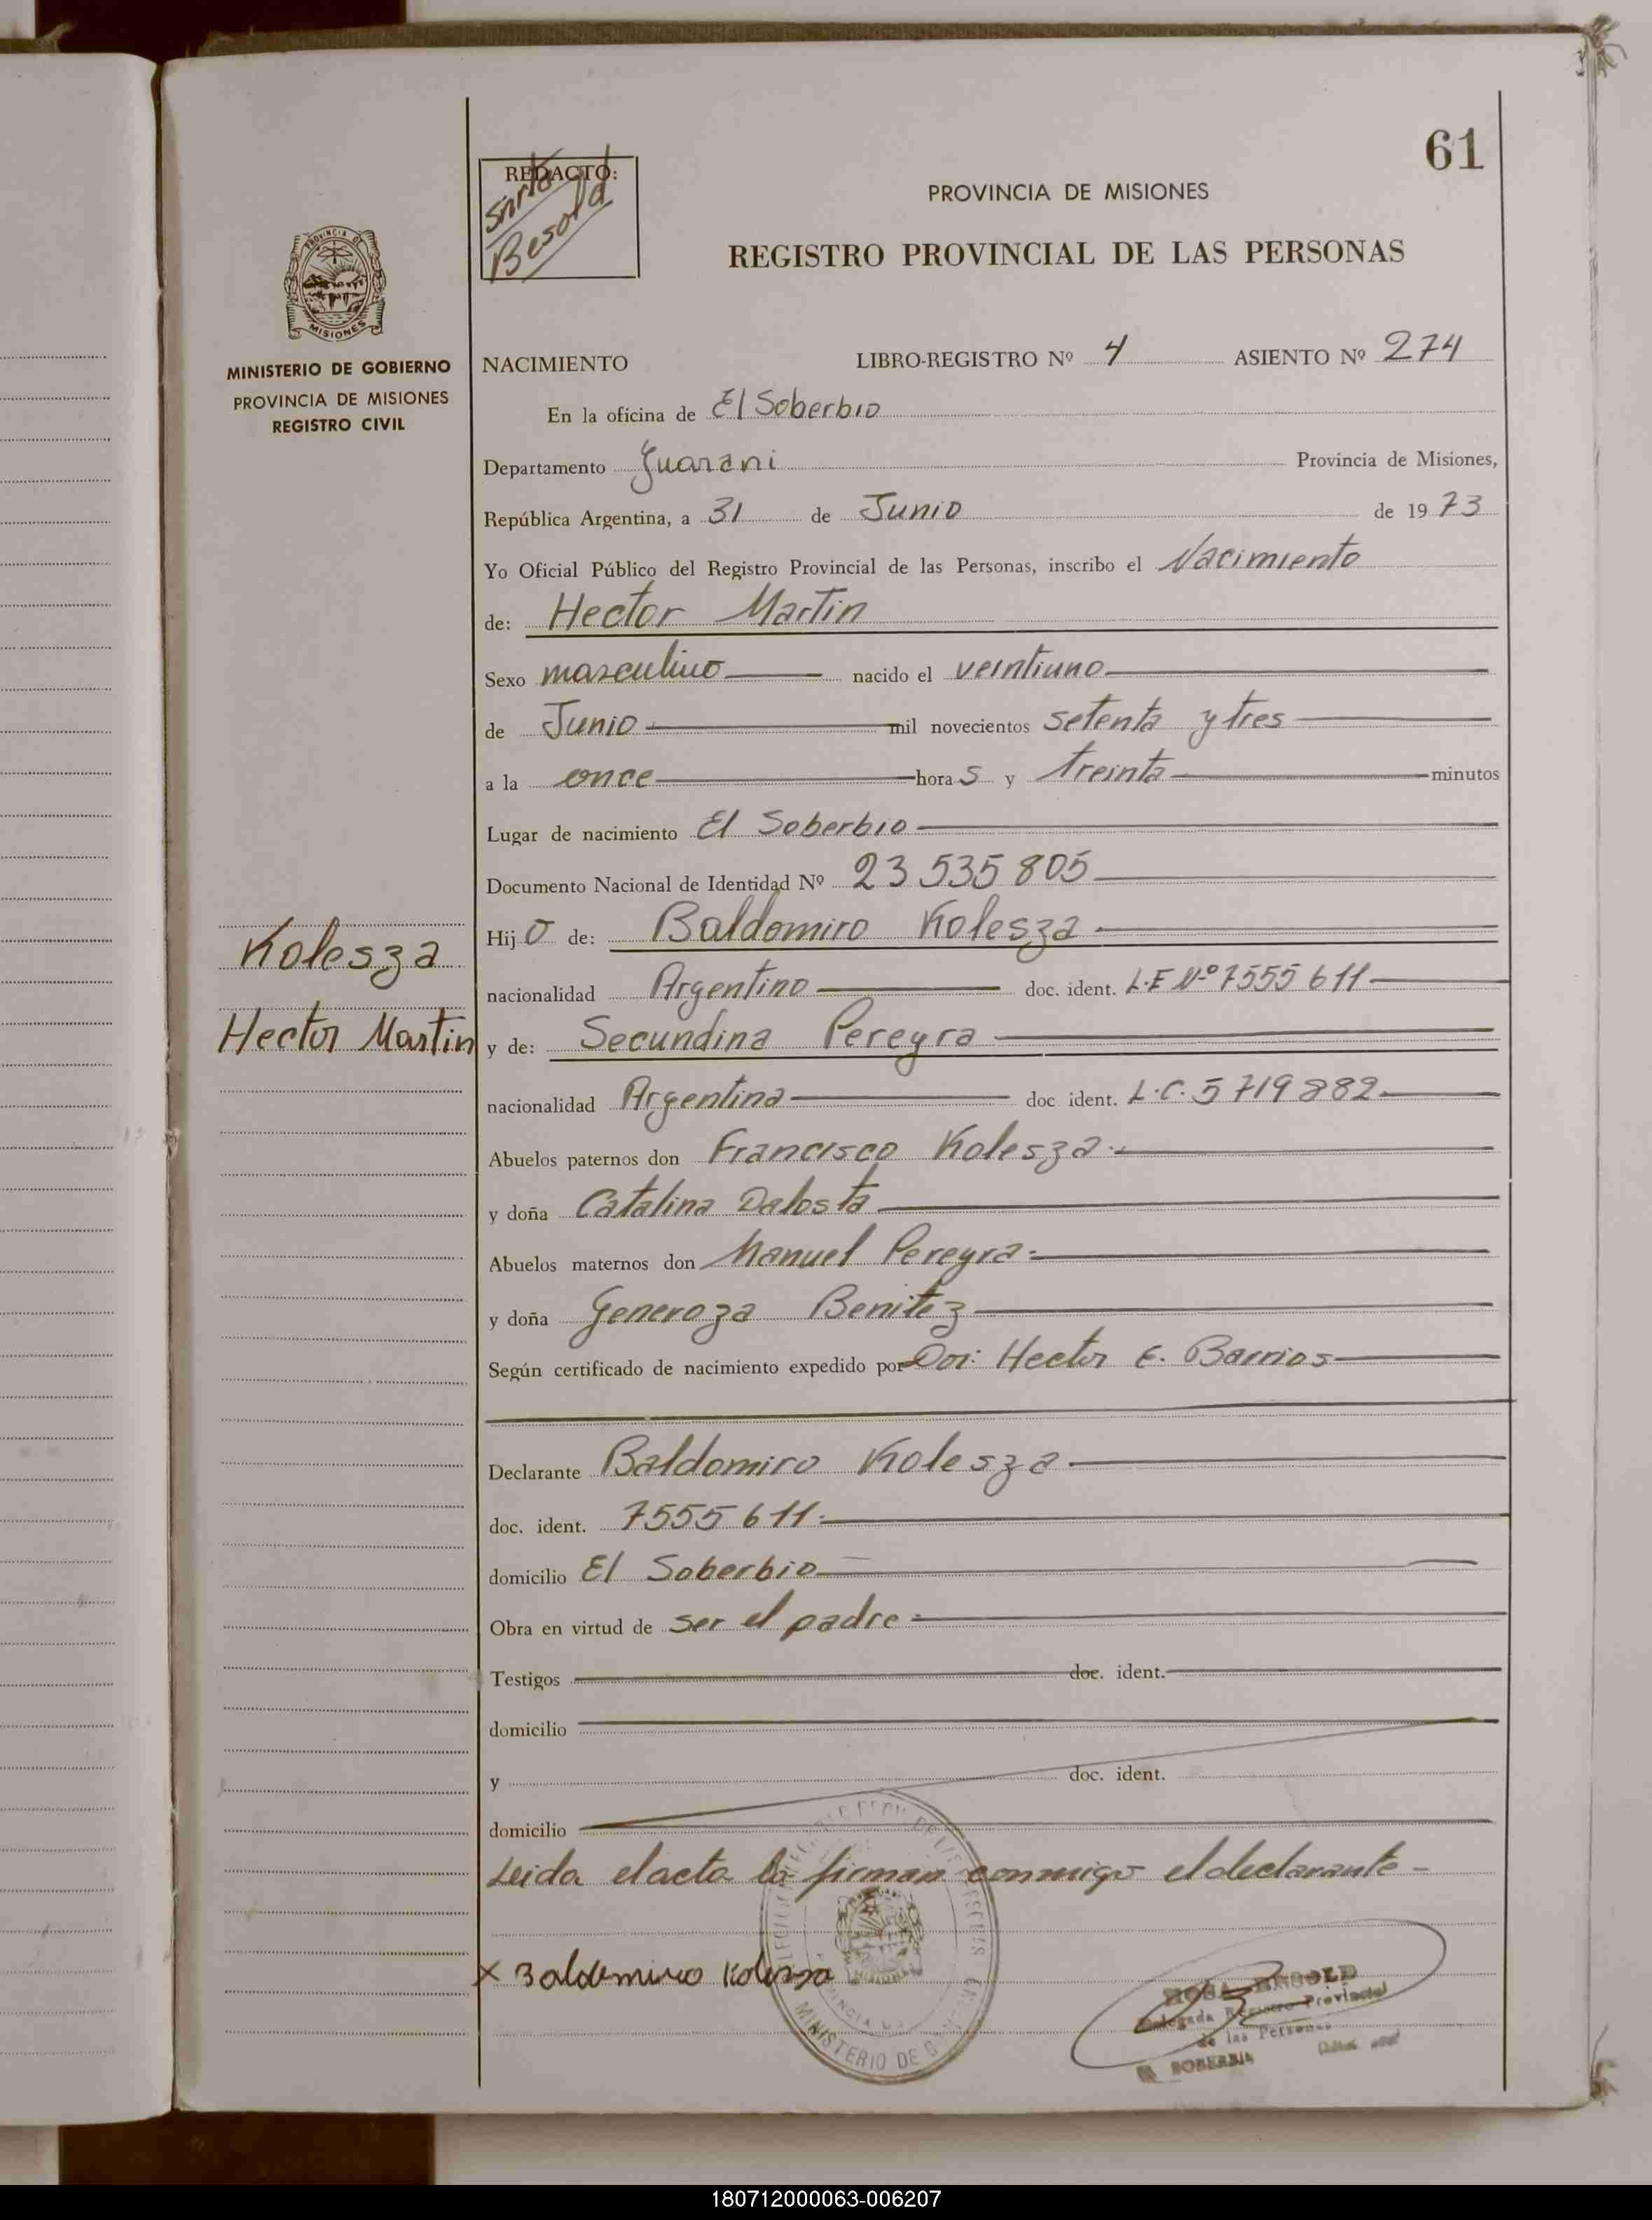 61
REDACTÓ:
Besold
PROVINCIA DE MISIONES
REGISTRO PROVINCIAL DE LAS PERSONAS
PROVINCIA DE
MISIONES
MINISTERIO DE GOBIERNO
PROVINCIA DE MISIONES
REGISTRO CIVIL
NACIMIENTO LIBRO-REGISTRO Nº 4 ASIENTO Nº 274
En la oficina de El Soberbio
Departamento Guarani Provincia de Misiones,
República Argentina, a 31 de Junio de 1973
Yo Oficial Público del Registro Provincial de las Personas, inscribo el Nacimiento
de: Hector Martin
Sexo masculino nacido el veintiuno
de Junio mil novecientos setenta y tres
a la once horas y treinta minutos
Lugar de nacimiento El Soberbio
Documento Nacional de Identidad Nº 23 535 805
Hijo de: Baldomiro Kolesza
Kolesza
nacionalidad Argentino doc. ident. L.E Nº 7555 611
Hector Martin
y de: Secundina Pereyra
nacionalidad Argentina doc ident. L.C. 5 719 882
Abuelos paternos don Francisco Kolesza
y doña Catalina Dalosta
Abuelos maternos don Manuel Pereyra
y doña Generoza Benitez
Según certificado de nacimiento expedido por Dor: Hector E. Barrios
Declarante Baldomiro Kolesza
doc. ident. 7555 611
domicilio El Soberbio
Obra en virtud de ser el padre
Testigos doc. ident.
domicilio
y doc. ident.
domicilio
Leida el acta la firman conmigo el declarante
x Baldomiro Kolesza
MINISTERIO DE
BESOLD
Delegada Registro Provincial
de las Personas
SOBERBIO
180712000063-006207